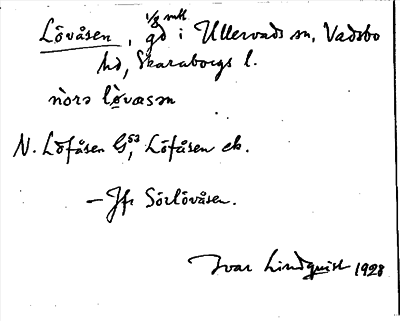 Lövåsen, 1/8 mtl gd i Ullervads sn, Vadsbo
hd, Skaraborgs l.
nòrə lövasən
N. Löfåsen G53, Löfåsen ek.
— Jfr Sörlövåsen.
Ivar Lindquist 1928